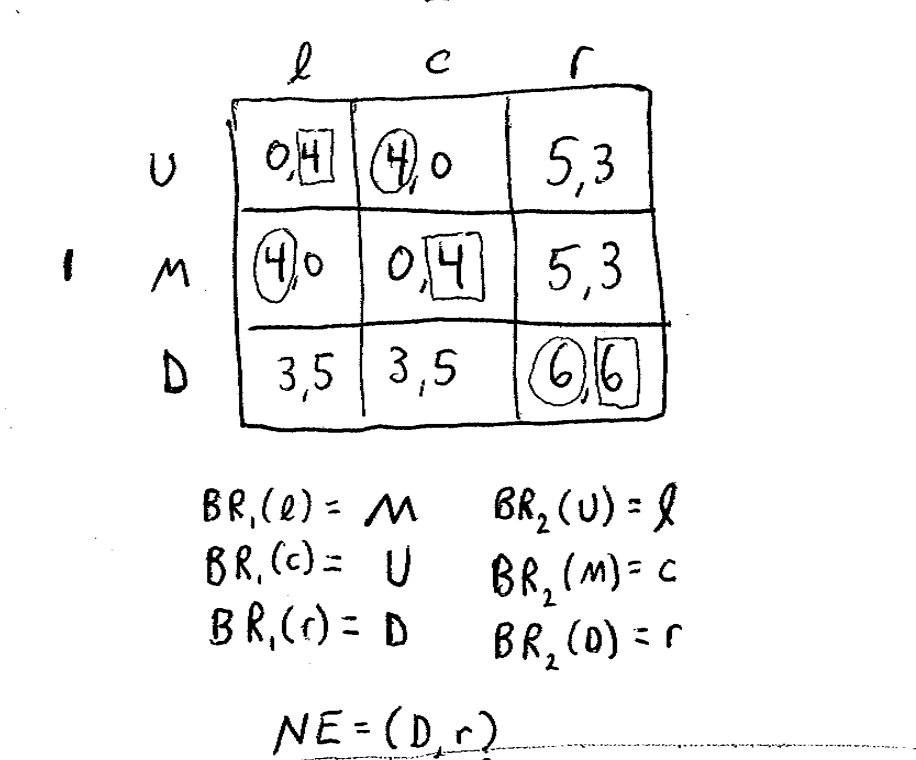 l c r
U 0,4 4,0 5,3
1 M 4,0 0,4 5,3
D 3,5 3,5 6,6
BR₁(l) = M BR₂(U) = l
BR₁(c) = U BR₂(M) = c
BR₁(r) = D BR₂(D) = r
NE = (D,r)